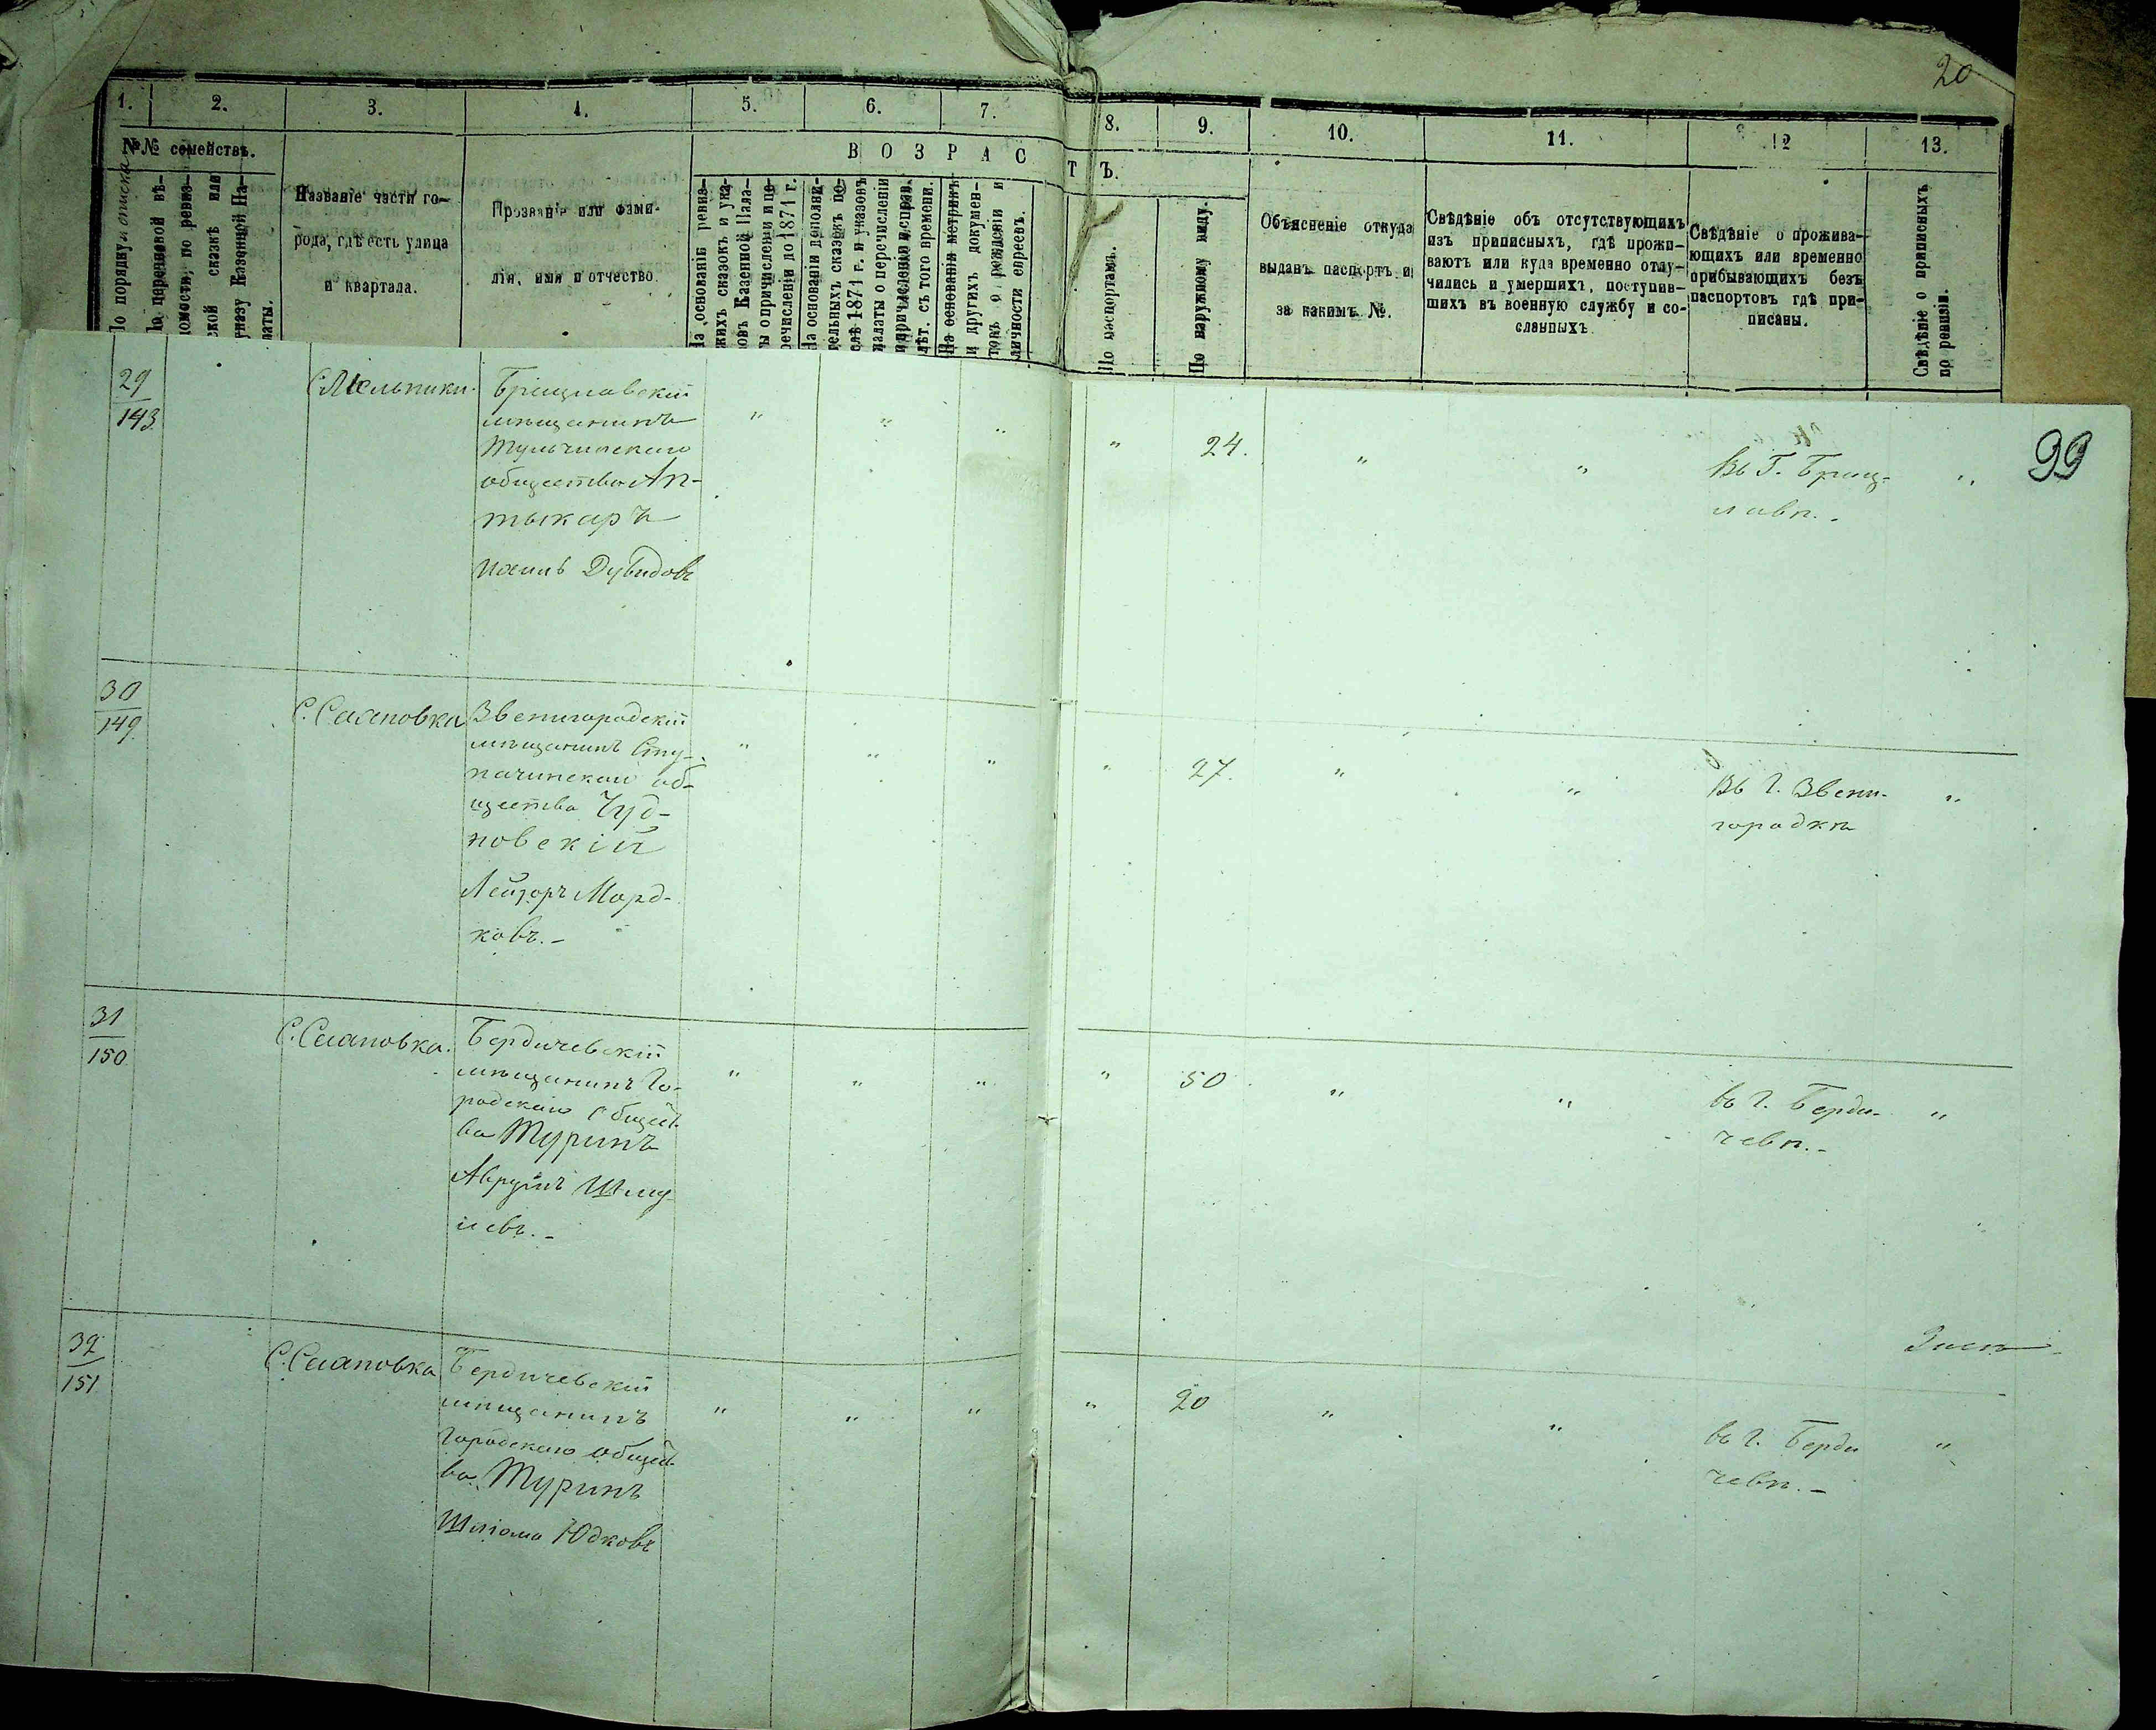 20
1.
2.
3.
4.
5.
6.
7.
8.
9.
10.
11.
12
13.
№№ семействъ.
В О З Р А С Т Ъ.
По порядку списка
По переписной вѣ-
домости, по ревиз-
ской сказкѣ или
указу Казенной Па-
латы.
Названіе части го-
рода, гдѣ есть улица
и квартала.
Прозваніе или фами-
лія, имя и отчество.
На основаніи ревиз-
кихъ сказокъ и ука-
зовъ Казенной Пала-
ты о причисленіи и пе-
речисленіи до 1871 г.
На основаніи дополни-
тельныхъ сказокъ по-
слѣ 1871 г. и указовъ
палаты о перечисленіи
и причисленіи и справ.
лѣт. съ того времени.
На основаніи метрикъ
и другихъ докумен-
товъ о рожденіи и
личности евреевъ.
По паспортамъ.
По наружному виду.
Объясненіе откуда
выданъ паспортъ и
за какимъ №.
Свѣдѣніе объ отсутствующихъ
изъ приписныхъ, гдѣ прожи-
ваютъ или куда временно отлу-
чились и умершихъ, поступив-
шихъ въ военную службу и со-
сланныхъ.
Свѣдѣніе о прожива-
ющихъ или временно
прибывающихъ безъ
паспортовъ гдѣ при-
писаны.
Свѣдѣніе о приписныхъ
по ревизіи.
99
29
143
С. Мельники.
Брацлавскій
мѣщанинъ
Тульчинскаго
общества Ап-
тыкаръ
Дувидовъ
" " " " 24. " "
Въ Г. Брац-
лавѣ.
"
30
149
С. Сааповка
Звенигородскій
мѣщанинъ
общества Чуд-
новскій
Лейзоръ Морд-
ковъ.-
" " " " 27. " "
Въ Г. Звени-
городкѣ
"
31
150
С. Сааповка.
Бердичевскій
мѣщанинъ Го-
родскаго Общест-
ва Туринъ
Аврумъ Шму-
левъ.-
" " " " 50 " "
въ Г. Берди-
чевѣ.-
"
32
151
С. Сааповка
Бердичевскій
мѣщанинъ
Городскаго общест-
ва Туринъ
Шліома Юдковъ
" " " " 20 " "
въ Г. Берди
чевѣ.-
"